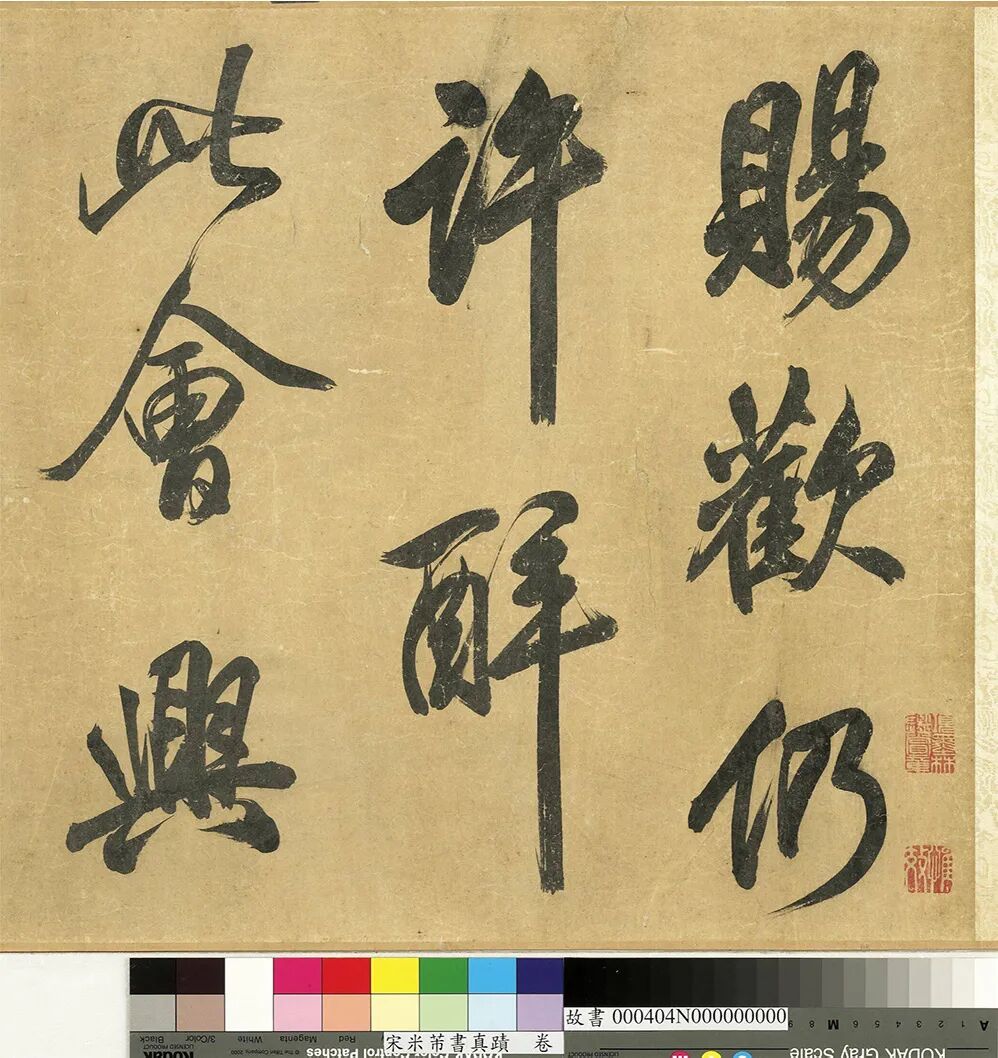 賜歡仍
許醉
此會興
故書 000404N000000000
宋米芾書真蹟 卷
Red
Magenta
White
3/Color
Black
Kodak
LICENSED PRODUCT
Control Patches
KODAK Gray Scale
A 1 2 3 4 5 6 M 8 9